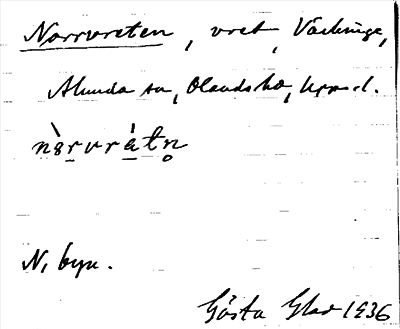 Norrvreten, vret, Väskinge,
Alunda sn, Olands hd, Upps. l.
N, byn.
Gösta Glad 1936